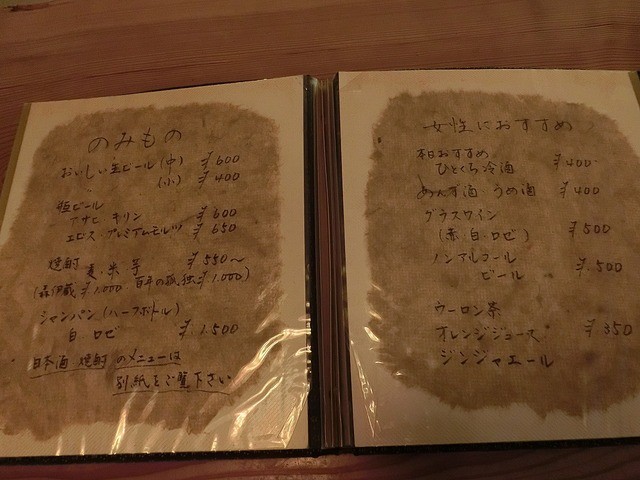 のみもの
おいしい生ビール(中) ¥600
(小) ¥400
瓶ビール
アサヒ・キリン ¥600
エビス・プレミアムモルツ ¥650
焼酎 麦・米 等 ¥550～
(森伊蔵 ¥1.000 百年の孤独 ¥1.000)
シャンパン(ハーフボトル)
白 ロゼ ¥1.500
日本酒 焼酎 のメニューは
別紙をご覧下さい
女性におすすめ
本日おすすめ
ひとくち冷酒 ¥400
あんず酒・うめ酒 ¥400
グラスワイン
(赤・白・ロゼ) ¥500
ノンアルコール
ビール ¥500
ウーロン茶
オレンジジュース ¥350
ジンジャエール